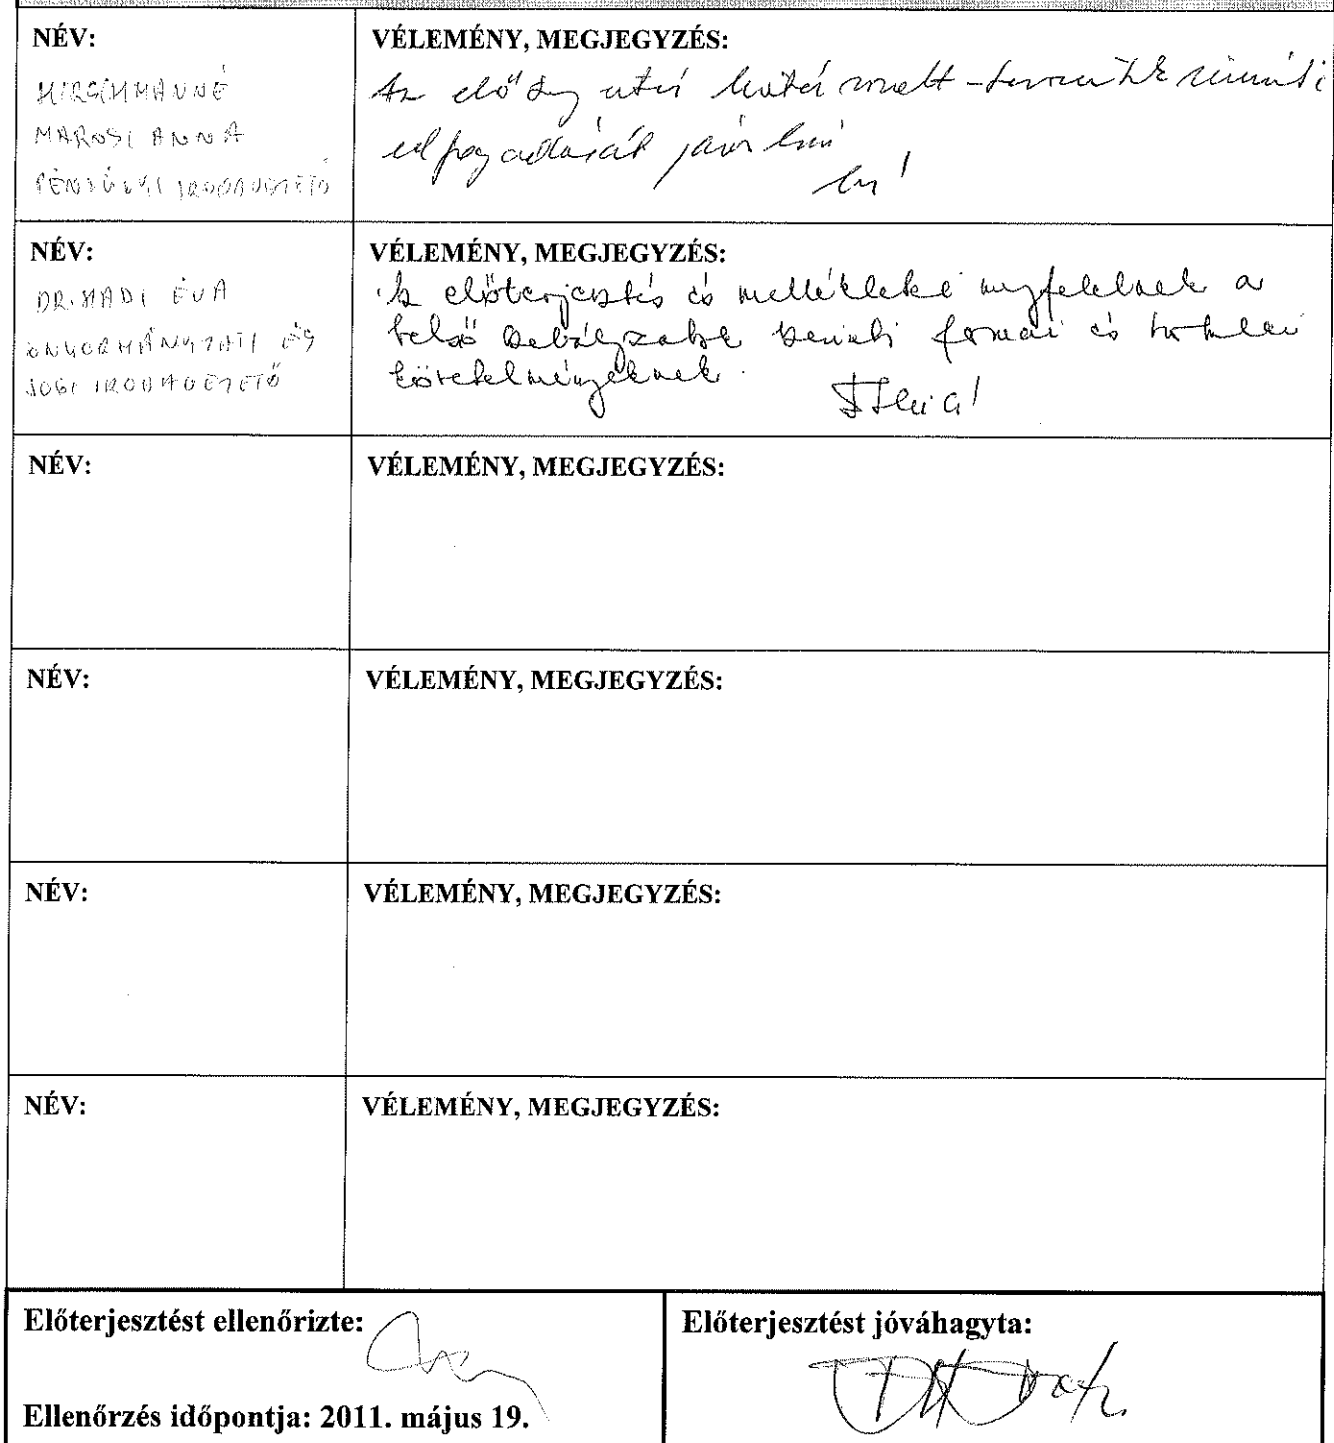 NÉV:
HIRSCHMANNÉ
MAROSI ANNA
PÉNZÜGYI IRODAVEZETŐ
VÉLEMÉNY, MEGJEGYZÉS:
Az
elfogadását
NÉV:
DR. MÁDI ÉVA
ÖNKORMÁNYZATI ÉS
JOGI IRODAVEZETŐ
VÉLEMÉNY, MEGJEGYZÉS:
Az előterjesztés és mellékletei megfelelnek a
belső szabályzatok szerinti formai és tartalmi
követelményeknek.
NÉV:
VÉLEMÉNY, MEGJEGYZÉS:
NÉV:
VÉLEMÉNY, MEGJEGYZÉS:
NÉV:
VÉLEMÉNY, MEGJEGYZÉS:
NÉV:
VÉLEMÉNY, MEGJEGYZÉS:
Előterjesztést ellenőrizte:
Ellenőrzés időpontja: 2011. május 19.
Előterjesztést jóváhagyta: